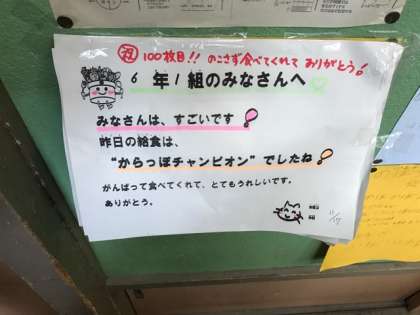 祝 100枚目!! のこさず食べてくれて ありがとう!
6 年 1 組のみなさんへ
みなさんは、すごいです
昨日の給食は、
"からっぽチャンピオン" でしたね
がんばって食べてくれて、とてもうれしいです。
ありがとう。